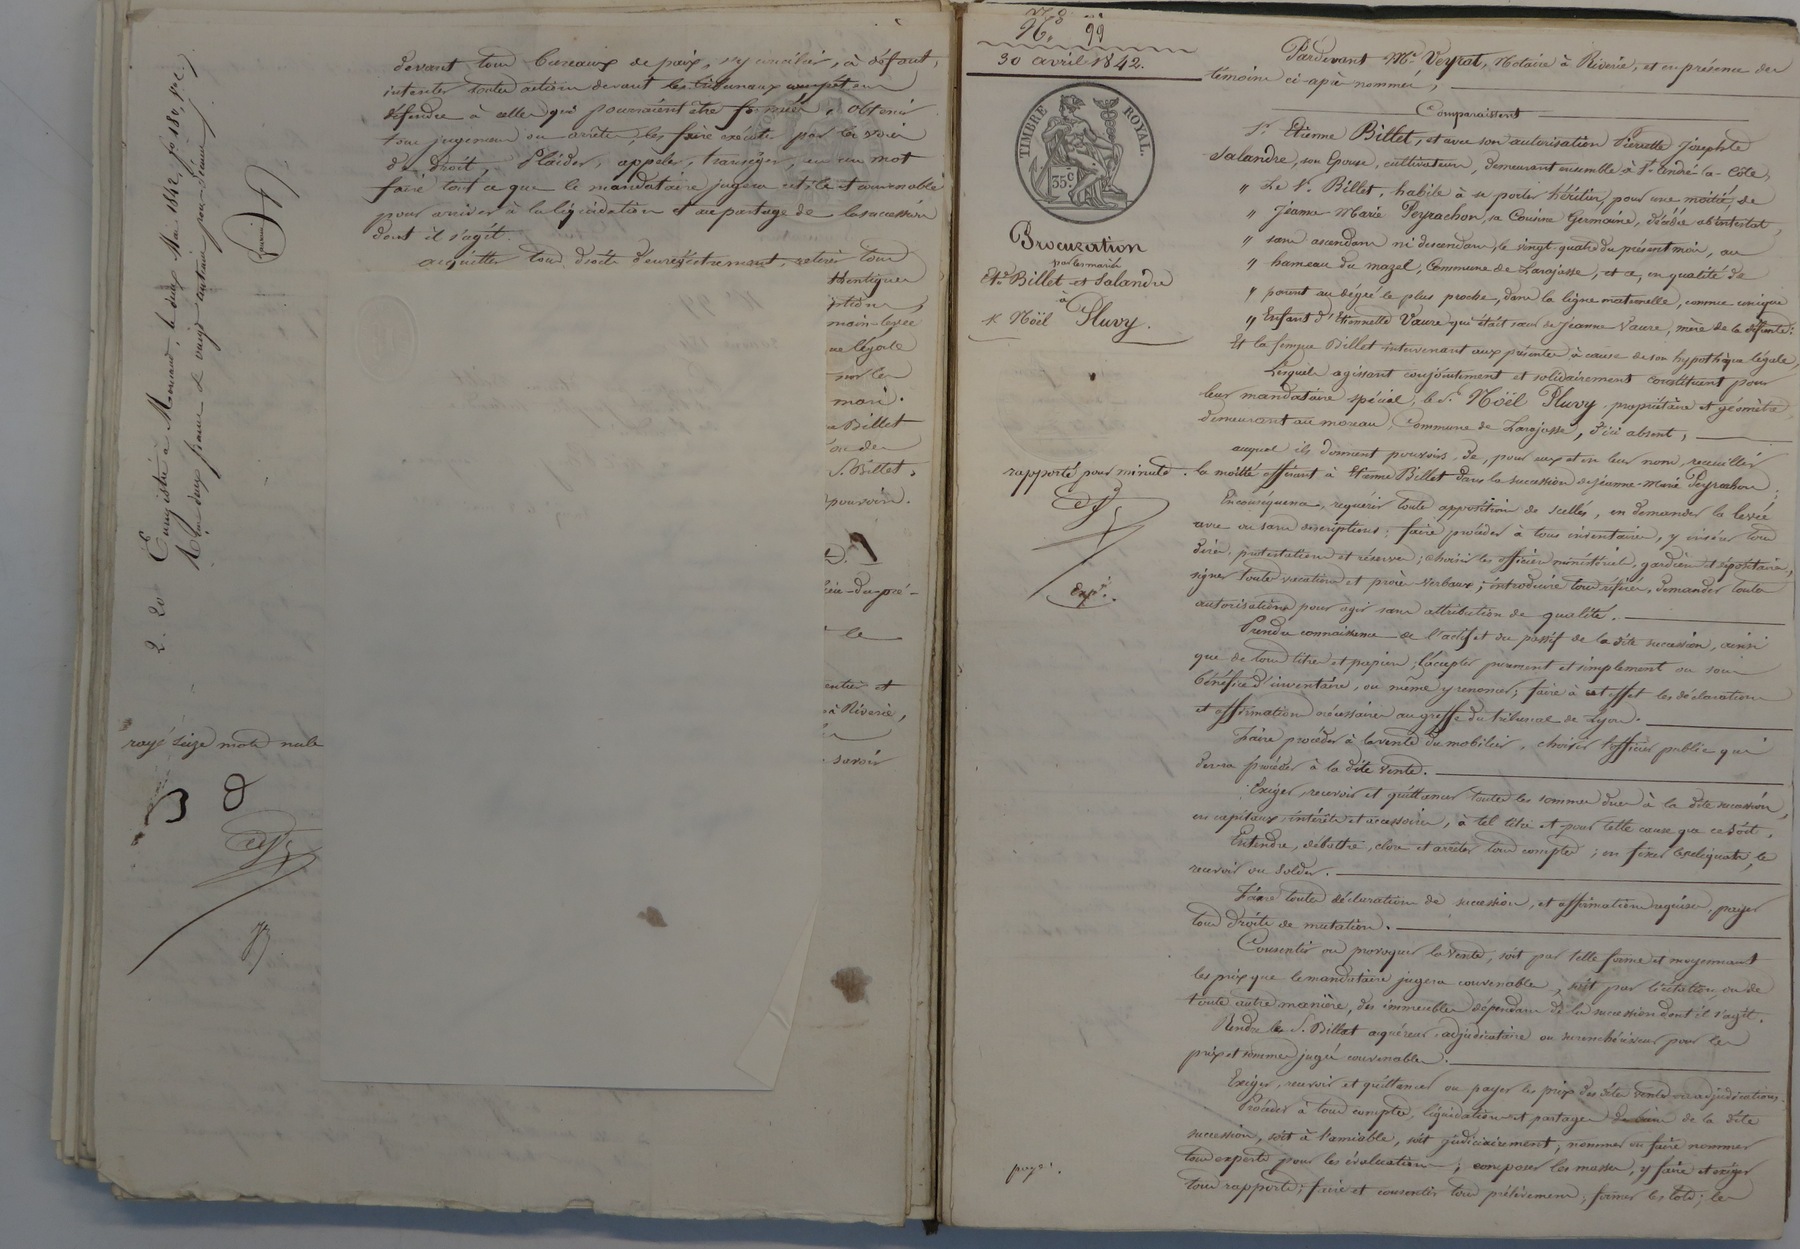 devant tous bureaux de paix, s'y concilier, à défaut,
intenter toutes actions devant les tribunaux compétens
défendre à celles qui pourraient être formées, obtenir
tous jugemens ou arrêts, les faire exécuter par les voies
de droit, plaider, appeler, transiger, en un mot
faire tout ce que le mandataire jugera utile et convenable
pour arriver à la liquidation et au partage de la succession
dont il s'agit.
acquitter tous droits d'enregistrement, retirer tous
thentiques
ptions,
main-levée
ue légale
sur les
mari.
Billet
on des
S. Billet,
pouvoirs.
le
entier et
à Riverie,
savoir
Enregistré à Mornant, le deux Mai 1842, fo 180,
Reçu deux francs et vingt centimes pour décime
2. 20
rayé seize mots nuls
No 99
30 avril 1842.
TIMBRE ROYAL.
35 c.
Procuration
par les mariés
Et. Billet et Salandre
à
s. Noël Pluvy.
rapporté pour minute.
Exp.
payé.
Pardevant Me Veyrat, Notaire à Riverie, et en présence des
témoins ci-après nommés,
Comparaissent
Sr. Etienne Billet, et avec son autorisation Pierrette Josephte
Salandre, son Epouse, cultivateurs, demeurant ensemble à St. André-la-Côte,
" Le sr. Billet, habile à se porter héritier, pour une moitié, de
" Jeanne Marie Peyrachon, sa Cousine Germaine, décédée ab intestat,
" sans ascendans ni descendans, le vingt-quatre du présent mois, au
" hameau du mazel, Commune de Larajasse, et ce, en qualité de
" parent au dégré le plus proche, dans la ligne maternelle, comme unique
" Enfant d'Etiennette Vaure qui était sœur de Jeanne Vaure, mère de la défunte:
Et la femme Billet intervenant aux présentes à cause de son hypothèque légale,
Lesquels agissant conjointement et solidairement constituent pour
leur mandataire spécial, le Sr. Noël Pluvy, propriétaire et géomètre
demeurant au moreau, Commune de Larajasse, d'ici absent,
auquel ils donnent pouvoirs de, pour eux et en leur nom, recueillir
la moitié afférant à Etienne Billet dans la succession de Jeanne-Marie Peyrachon;
En conséquence, requérir toute apposition de scellés, en demander la levée
avec ou sans descriptions; faire procéder à tous inventaires, y insérer tous
dires, protestations et réserves; choisir les officiers ministériels, gardiens et dépositaires,
signer toutes vacations et procès-verbaux; introduire tous référés, demander toutes
autorisations pour agir sans attribution de qualité.
Prendre connaissance de l'actif et du passif de la dite succession, ainsi
que de tous titres et papiers; l'accepter purement et simplement ou sous
bénéfice d'inventaire, ou même y renoncer; faire à cet effet les déclarations
et affirmations nécessaires au greffe du tribunal de Lyon.
Faire procéder à la vente du mobilier, choisir l'officier public qui
devra procéder à la dite vente.
Exiger, recevoir et quittancer toutes les sommes dues à la dite succession,
en capitaux, intérêts et accessoires, à tel titre et pour telle cause que ce soit.
Entendre, débattre, clore et arrêter tous comptes; en fixer les reliquats, les
recevoir ou solder.
Faire toutes déclarations de succession, et affirmations requises, payer
tous droits de mutation.
Consentir ou provoquer la vente, soit par telle forme et moyennant
les prix que le mandataire jugera convenables, soit par licitation, ou de
toute autre manière, des immeubles dépendans de la succession dont il s'agit.
Rendre le S. Billet acquéreur, adjudicataire ou surenchérisseur pour les
prix et sommes jugés convenables.
Exiger, recevoir et quittancer ou payer les prix des dites ventes ou adjudications.
Procéder à tous comptes, liquidations et partages de biens de la dite
succession, soit à l'amiable, soit judiciairement; nommer ou faire nommer
tous experts pour les évaluations; composer les masses, y faire et exiger
tous rapports; faire et consentir tous prélèvemens; former les lots; les